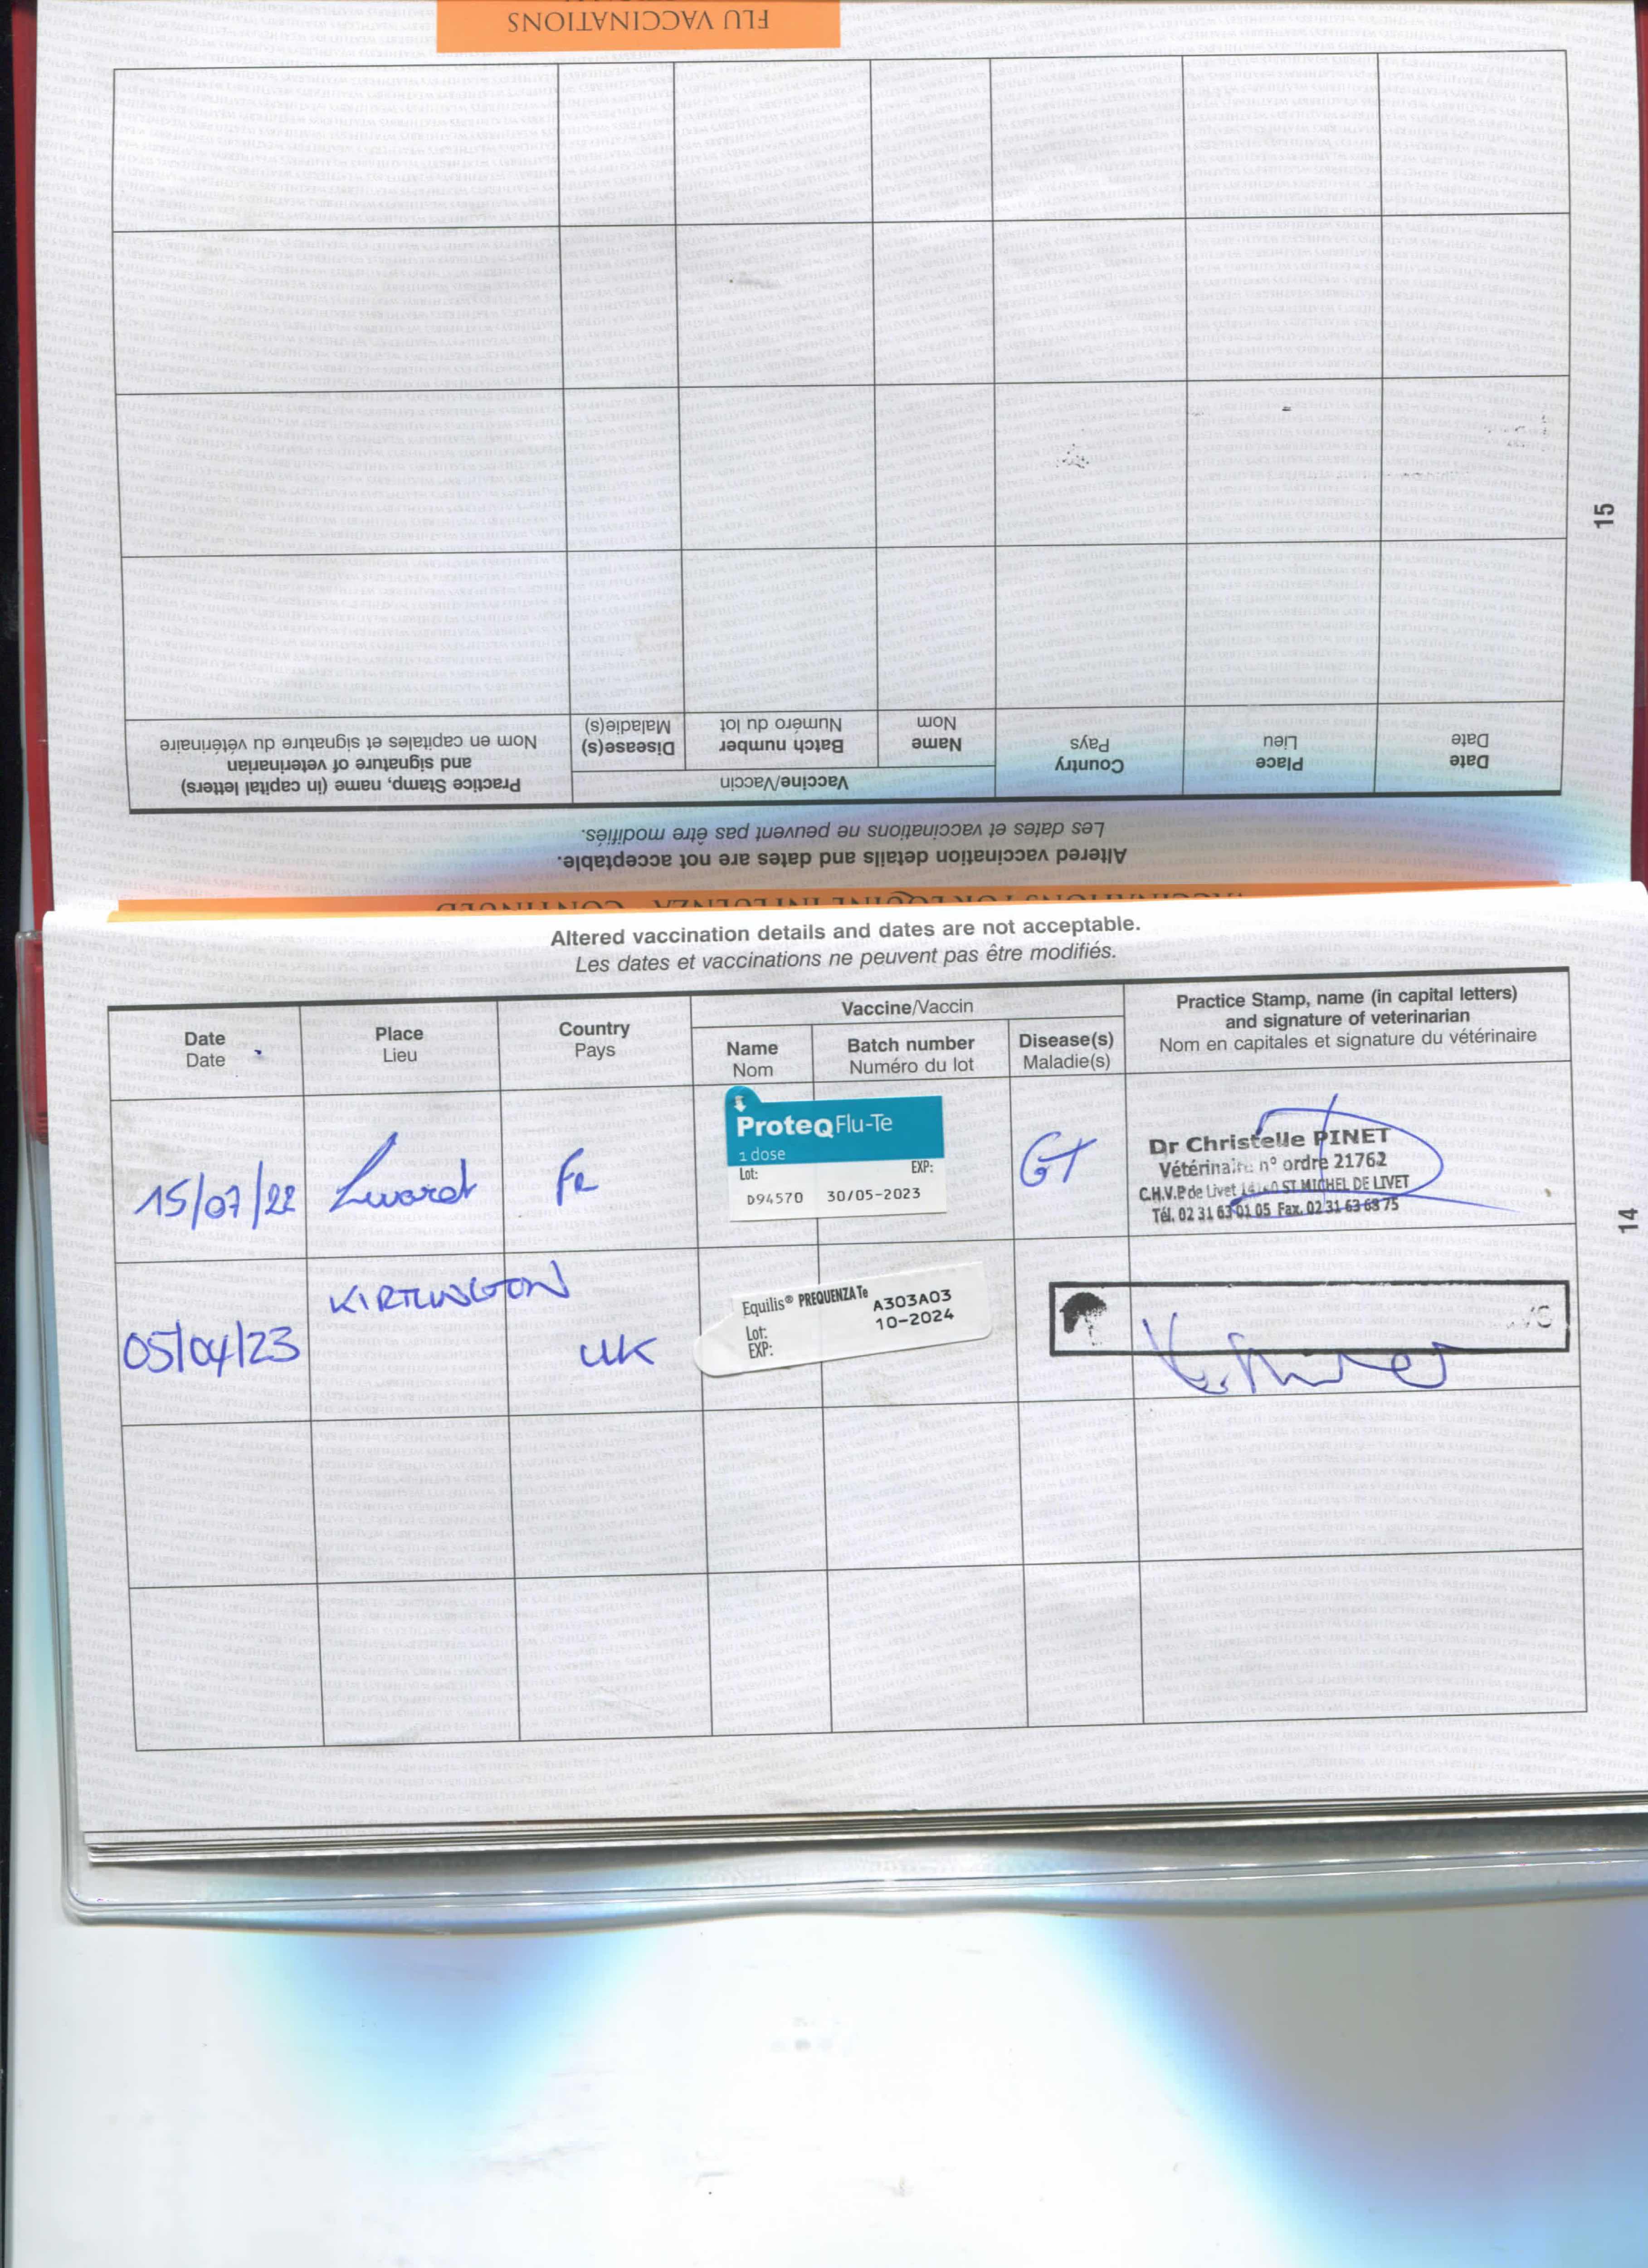 FLU VACCINATIONS
15
Date Place Country Vaccine/Vaccin Practice Stamp, name (in capital letters)
and signature of veterinarian
Date Lieu Pays Name Batch number Disease(s) Nom en capitales et signature du vétérinaire
Nom Numéro du lot Maladie(s)
Altered vaccination details and dates are not acceptable.
Les dates et vaccinations ne peuvent pas être modifiés.
VACCINATIONS FOR EQUINE INFLUENZA CONTINUED
Altered vaccination details and dates are not acceptable.
Les dates et vaccinations ne peuvent pas être modifiés.
Date Place Country Vaccine/Vaccin Practice Stamp, name (in capital letters)
and signature of veterinarian
Date Lieu Pays Name Batch number Disease(s) Nom en capitales et signature du vétérinaire
Nom Numéro du lot Maladie(s)
15/07/22 Fr
ProteqFlu-Te
1 dose
Lot: EXP:
D94570 30/05-2023
GT
Dr Christelle PINET
Vétérinaire n° ordre 21762
C.H.V.P de Livet 14140 ST MICHEL DE LIVET
Tél. 02 31 63 01 05 Fax. 02 31 63 68 75
14
05/04/23 KIRTLINGTON UK
Equilis® PREQUENZA Te A303A03
10-2024
Lot:
EXP: